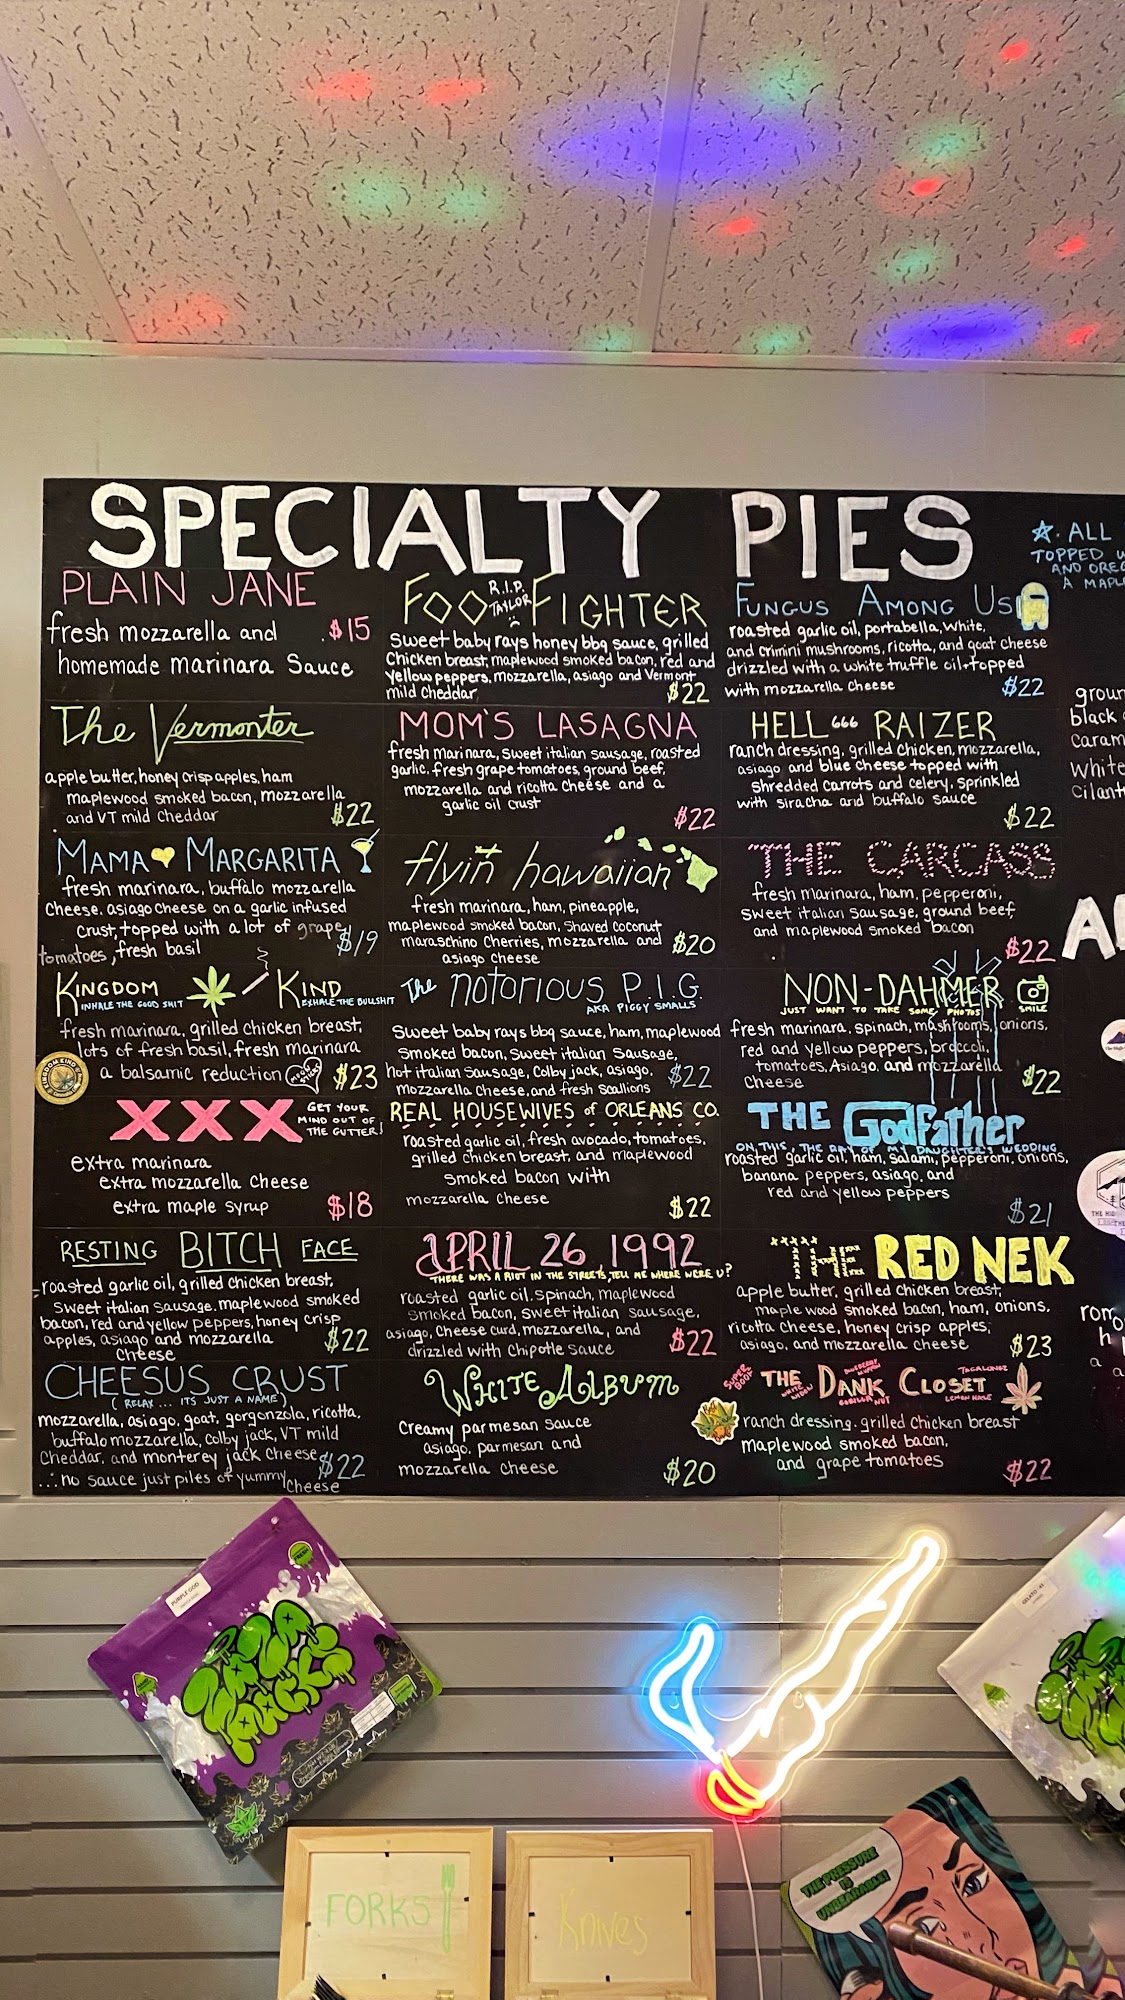 SPECIALTY PIES
PLAIN JANE
fresh mozzarella and $15
homemade marinara Sauce
FOO R.I.P. TAYLOR FIGHTER
Sweet baby rays honey bbq sauce, grilled
Chicken breast, maplewood smoked bacon, red and
yellow peppers, mozzarella, asiago and Vermont
mild cheddar $22
FUNGUS AMONG US
roasted garlic oil, portabella, white,
and crimini mushrooms, ricotta, and goat cheese
drizzled with a white truffle oil + topped
with mozzarella cheese $22
The Vermonter
apple butter, honey crisp apples, ham
maplewood smoked bacon, mozzarella
and VT mild cheddar $22
MOM'S LASAGNA
fresh marinara, sweet italian sausage, roasted
garlic, fresh grape tomatoes, ground beef,
mozzarella and ricotta cheese and a
garlic oil crust
$22
HELL 666 RAIZER
ranch dressing, grilled chicken, mozzarella,
asiago and blue cheese topped with
shredded carrots and celery, sprinkled
with siracha and buffalo sauce
$22
MAMA MARGARITA
fresh marinara, buffalo mozzarella
cheese, asiago cheese on a garlic infused
crust, topped with a lot of grape
tomatoes, fresh basil $19
flyin hawaiian
fresh marinara, ham, pineapple,
maplewood smoked bacon, shaved coconut
maraschino cherries, mozzarella and
asiago cheese $20
THE CARCASS
fresh marinara, ham, pepperoni,
sweet italian sausage, ground beef,
and maplewood smoked bacon
$22
KINGDOM KIND
INHALE THE GOOD SHIT EXHALE THE BULLSHIT
fresh marinara, grilled chicken breast,
lots of fresh basil, fresh marinara
a balsamic reduction $23
The notorious P.I.G.
AKA PIGGY SMALLS
Sweet baby rays bbq sauce, ham, maplewood
smoked bacon, sweet italian sausage,
hot italian sausage, colby jack, asiago,
mozzarella cheese, and fresh scallions $22
NON-DAHMER
JUST WANT TO TAKE SOME PHOTOS SMILE
fresh marinara, spinach, mushrooms, onions,
red and yellow peppers, broccoli,
tomatoes, Asiago, and mozzarella
cheese $22
XXX
GET YOUR
MIND OUT OF
THE GUTTER!
extra marinara
extra mozzarella cheese
extra maple syrup $18
REAL HOUSEWIVES of ORLEANS CO.
roasted garlic oil, fresh avocado, tomatoes,
grilled chicken breast, and maplewood
smoked bacon with
mozzarella cheese $22
THE Godfather
ON THIS, THE DAY OF MY DAUGHTER'S WEDDING
roasted garlic oil, ham, salami, pepperoni, onions,
banana peppers, asiago, and
red and yellow peppers
$21
RESTING BITCH FACE
roasted garlic oil, grilled chicken breast,
sweet italian sausage, maplewood smoked
bacon, red and yellow peppers, honey crisp
apples, asiago and mozzarella $22
cheese
APRIL 26, 1992
THERE WAS A RIOT IN THE STREETS, TELL ME WHERE WERE U?
roasted garlic oil, spinach, maplewood
smoked bacon, sweet italian sausage,
asiago, cheese curd, mozzarella, and
drizzled with chipotle sauce $22
THE RED NEK
apple butter, grilled chicken breast,
maple wood smoked bacon, ham, onions,
ricotta cheese, honey crisp apples,
asiago, and mozzarella cheese $23
CHEESUS CRUST
(RELAX... ITS JUST A NAME)
mozzarella, asiago, goat, gorgonzola, ricotta,
buffalo mozzarella, colby jack, VT mild
cheddar, and monterey jack cheese $22
...no sauce just piles of yummy cheese
White Album
Creamy parmesan sauce
asiago, parmesan and
mozzarella cheese $20
THE DANK CLOSET
SUPER BOOF WHITE WIDOW BLUEBERRY MUFFIN GORILLA NUT TAGALONGZ LEMON HAZE
ranch dressing, grilled chicken breast
maplewood smoked bacon,
and grape tomatoes $22
ALL
TOPPED
AND OREG
A MAPL
groun
black
Caram
white
Cilant
rom
PURPLE GOD
GELATO-41
FORKS
Knives
THE PRESSURE
IS
UNBEARABLE!